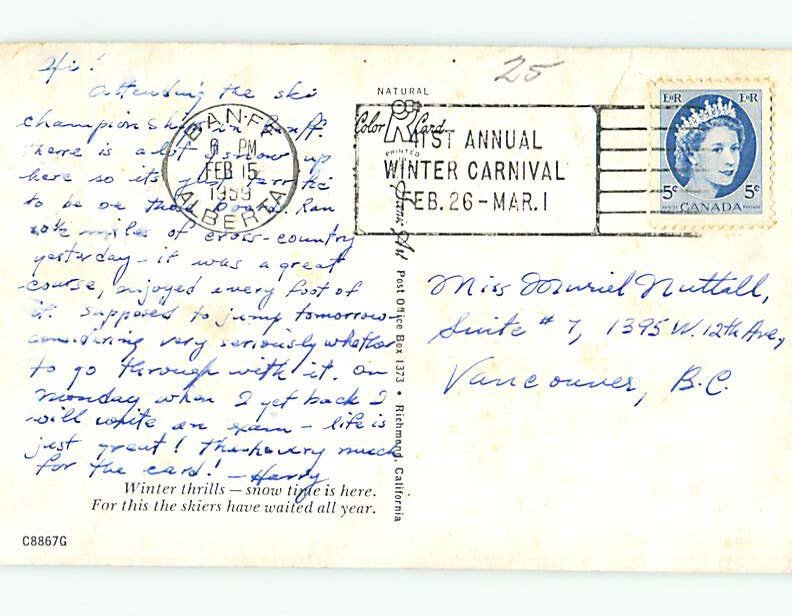 Hi!
Attending the ski
championship in Banff.
There is a lot of snow up
here so its just terrific
to be on those boards. Ran
10½ miles of cross-country
yesterday - it was a great
course, enjoyed every foot of
it. Supposed to jump tomorrow-
considering very seriously whether
to go through with it. On
monday when I get back I
will write an exam - life is
just great! Thanks very much
for the card! - Harry
Winter thrills — snow time is here.
For this the skiers have waited all year.
C8867G
25
BANFF
PM
FEB 15
1959
ALBERTA
NATURAL
Color Card
PRINTED
41ST ANNUAL
WINTER CARNIVAL
FEB. 26 - MAR. 1
Post Office Box 1373 • Richmond, California
EIIR EIIR
5¢ 5¢
POSTES CANADA POSTAGE
Miss Muriel Nuttall,
Suite # 7, 1395 W. 12th Ave.,
Vancouver, B.C.